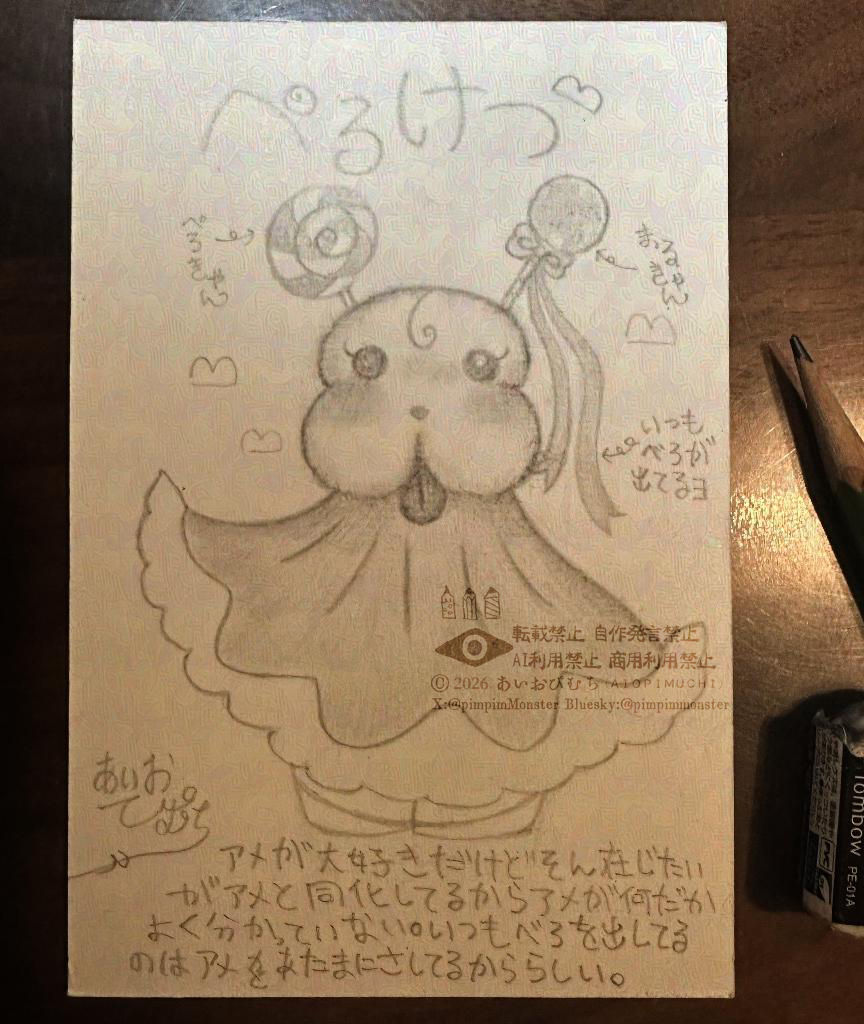 ぺろけっ
ぺろきゃん
まるきゃん
いつも
べろが
出てるヨ
転載禁止 自作発言禁止
AI利用禁止 商用利用禁止
© 2026 あいおぴむち (AIOPIMUCHI)
X:@pimpimMonster Bluesky:@pimpimmonster
あいお
ぴむち
アメが大好きだけど
がアメと同化してるからアメが何だか
よく分かっていない。いつもべろを出してる
のはアメをあたまにさしてるかららしい。
TOMBOW PE-01A